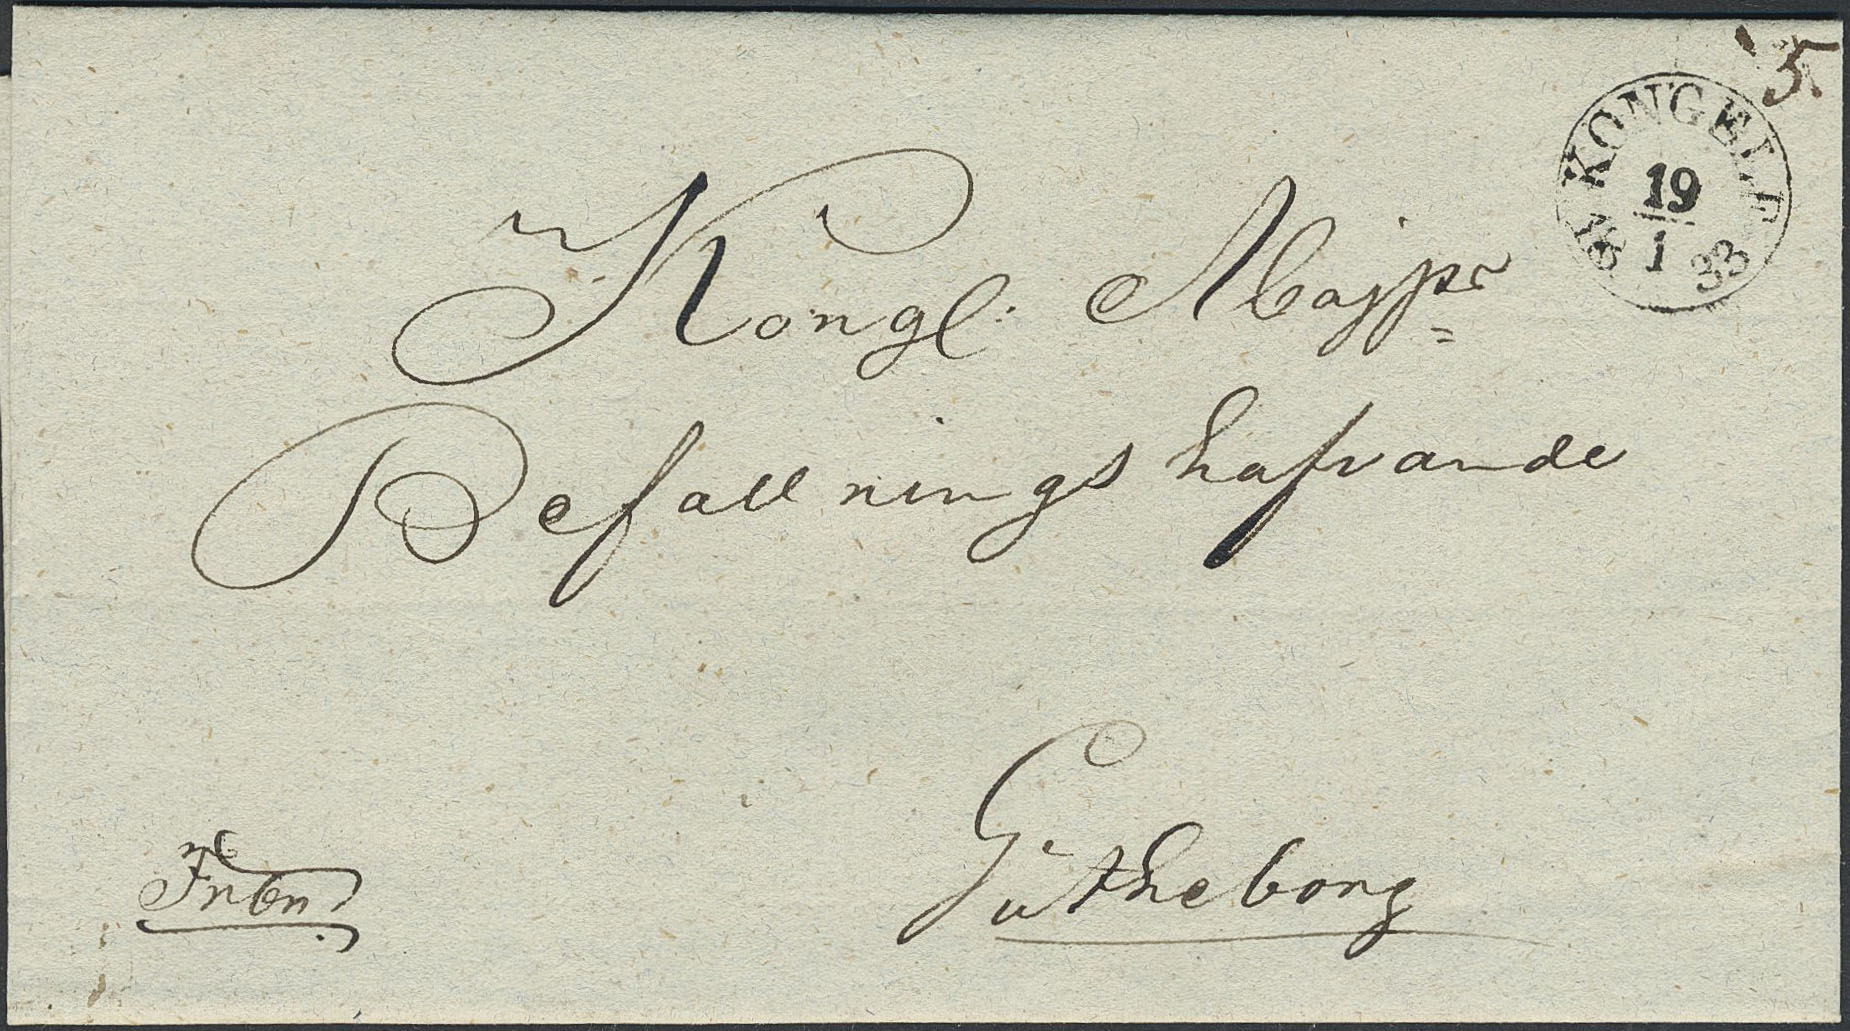 5.
KONGELF
19
1
33
Kongl: Majjts
Befallningshafvande
Götheborg